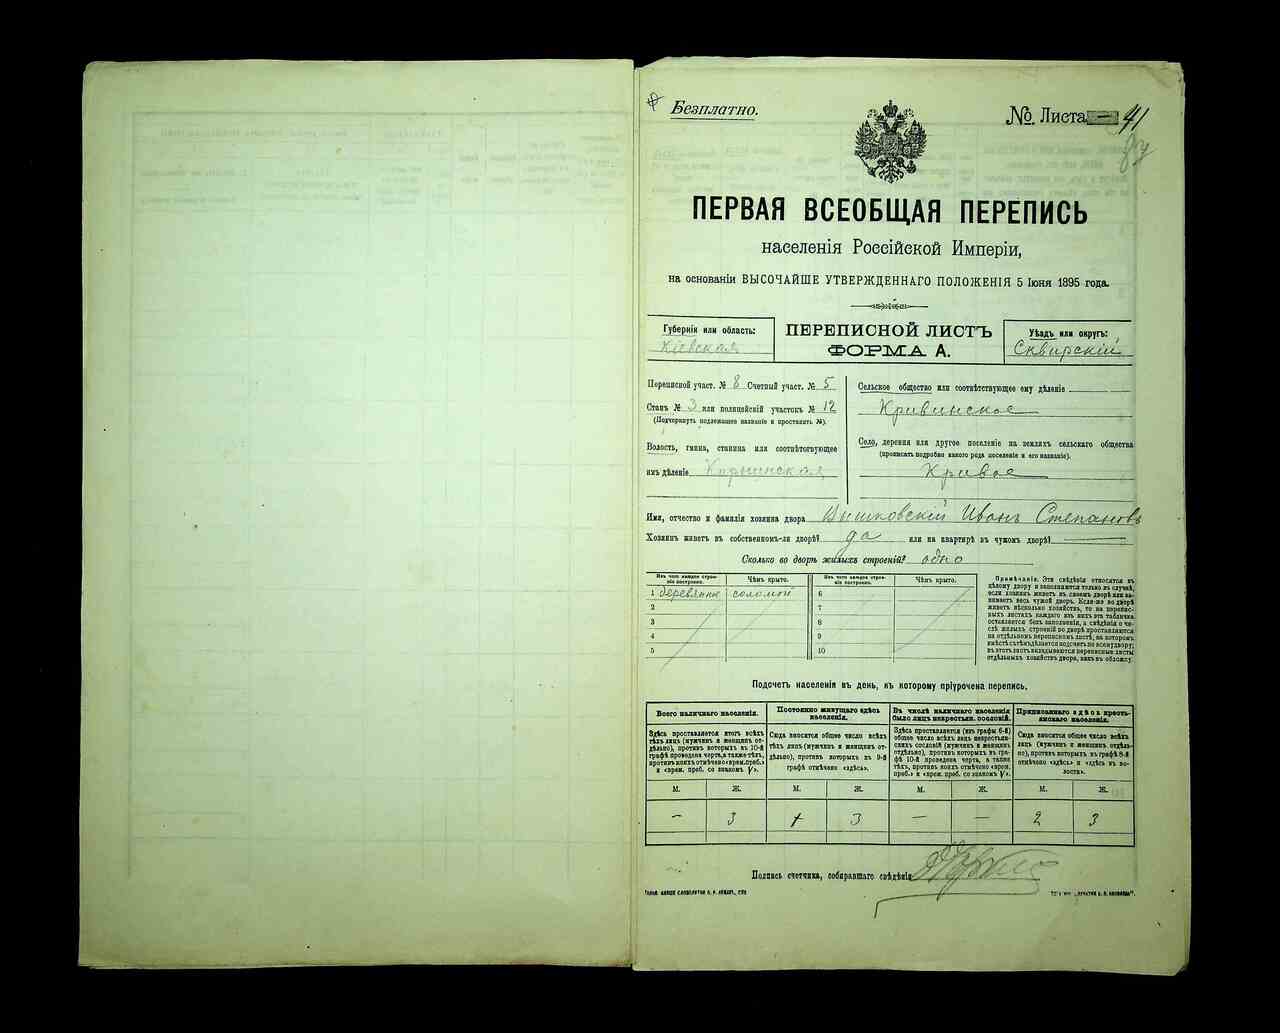 Безплатно.
№ Листа 41
ПЕРВАЯ ВСЕОБЩАЯ ПЕРЕПИСЬ
населенія Россійской Имперіи,
на основаніи ВЫСОЧАЙШЕ УТВЕРЖДЕННАГО ПОЛОЖЕНІЯ 5 Іюня 1895 года.
Губернія или область:
Кіевская
ПЕРЕПИСНОЙ ЛИСТЪ
ФОРМА А.
Уѣздъ или округъ:
Сквирскій
Переписной участ. № 8 Счетный участ. № 5
Станъ № 3 или полицейскій участокъ № 12
(Подчеркнуть подлежащее названіе и проставить №).
Волость, гмина, станица или соотвѣтствующее
имъ дѣленіе
Сельское общество или соотвѣтствующее ему дѣленіе
Кривинское
Село, деревня или другое поселеніе на земляхъ сельскаго общества
(прописать подробно какого рода поселеніе и его названіе).
Кривое
Имя, отчество и фамилія хозяина двора Вышковскій Иванъ Степановъ
Хозяинъ живетъ въ собственномъ-ли дворѣ? да или на квартирѣ въ чужомъ дворѣ?
Сколько во дворѣ жилыхъ строеній? одно
Изъ чего каждое строеніе построено.
Чѣмъ крыто.
Изъ чего каждое строеніе построено.
Чѣмъ крыто.
1 деревянное соломой 6
2 7
3 8
4 9
5 10
Примѣчаніе. Эти свѣдѣнія относятся къ
цѣлому двору и заполняются только въ случаѣ,
если хозяинъ живетъ въ своемъ дворѣ или за-
нимаетъ весь чужой дворъ. Если-же во дворѣ
живетъ нѣсколько хозяйствъ, то на перепис-
ныхъ листахъ каждаго изъ нихъ эта табличка
оставляется безъ заполненія, а свѣдѣнія о чи-
слѣ жилыхъ строеній во дворѣ проставляются
на отдѣльномъ переписномъ листѣ, на которомъ
вмѣстѣ съ тѣмъ дѣлается подсчетъ по всему двору;
въ этотъ листъ вкладываются переписные листы
отдѣльныхъ хозяйствъ двора, какъ въ обложку.
Подсчетъ населенія въ день, къ которому пріурочена перепись.
Всего наличнаго населенія.
Постоянно живущаго здѣсь населенія.
Въ числѣ наличнаго населенія было лицъ некрестьян. сословій.
Приписаннаго здѣсь крестьянскаго населенія.
Здѣсь проставляется итогъ всѣхъ
тѣхъ лицъ (мужчинъ и женщинъ от-
дѣльно), противъ которыхъ въ 10-й
графѣ проведена черта, а также тѣхъ,
противъ коихъ отмѣчено «врем. преб.»
и «врем. преб. со знакомъ V».
Сюда вносится общее число всѣхъ
тѣхъ лицъ (мужчинъ и женщинъ от-
дѣльно), противъ которыхъ въ 9-й
графѣ отмѣчено «здѣсь».
Здѣсь проставляется (изъ графы 6-й)
общее число всѣхъ лицъ некрестьян-
скихъ сословій (мужчинъ и женщинъ
отдѣльно), противъ которыхъ въ гра-
фѣ 10-й проведена черта, а также
тѣхъ, противъ коихъ отмѣчено «врем.
преб.» и «врем. преб. со знакомъ V».
Сюда вносится общее число всѣхъ
лицъ (мужчинъ и женщинъ отдѣль-
но), противъ которыхъ въ графѣ 8-й
отмѣчено «здѣсь» и «здѣсь въ во-
лости».
М. Ж. М. Ж. М. Ж. М. Ж.
— 3 3 — — 2 3
Подпись счетчика, собиравшаго свѣдѣнія